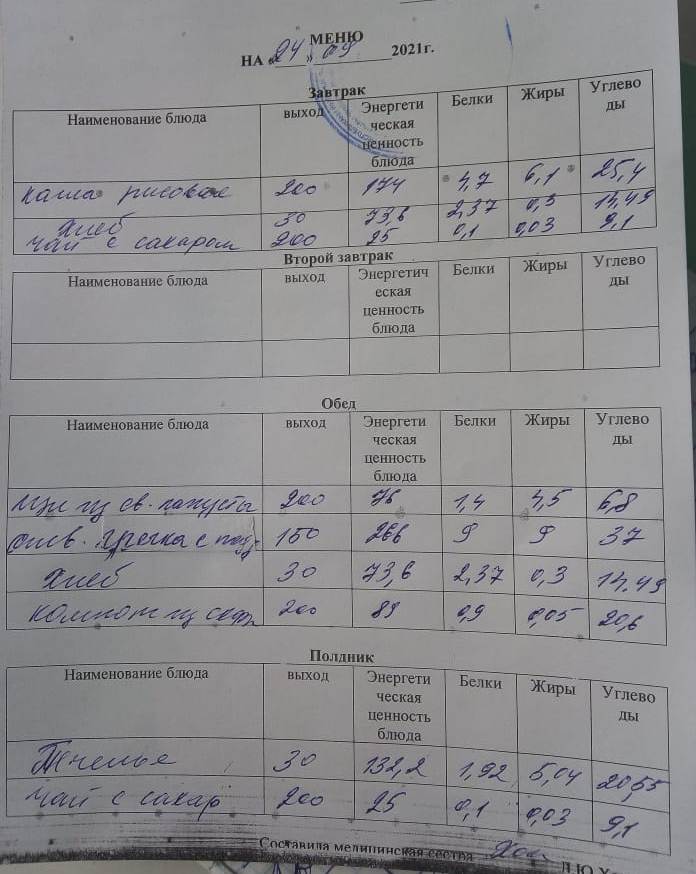 МЕНЮ
НА «24» 09 2021г.
Завтрак
Наименование блюда выход Энергети Белки Жиры Углево
ческая ды
ценность
блюда
каша рисовая 200 174 4,7 6,1 25,4
Хлеб 30 73,6 2,37 0,3 14,49
чай с сахаром 200 25 0,1 0,03 9,1
Второй завтрак
Наименование блюда выход Энергетич Белки Жиры Углево
еская ды
ценность
блюда
Обед
Наименование блюда выход Энергети Белки Жиры Углево
ческая ды
ценность
блюда
Щи из св. капусты 200 76 1,4 4,5 6,8
отв. гречка с 150 266 9 9 37
Хлеб 30 73,6 2,37 0,3 14.49
компот из 200 89 0,9 0,05 20,6
Полдник
Наименование блюда выход Энергети Белки Жиры Углево
ческая ды
ценность
блюда
Печенье 30 132,2 1,92 5,04 20,55
чай с сахар 200 25 0,1 0,03 9,1
Составила медицинская сестра